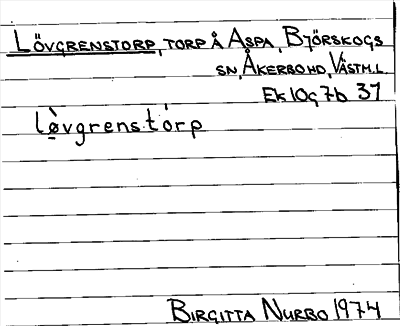 LÖVGRENSTORP, TORP Å ASPA, BJÖRSKOGS
SN, ÅKERBO HD, VÄSTM.L.
EK 10g 7b 37
lø̀vgrens tórp
BIRGITTA NURBO 1974